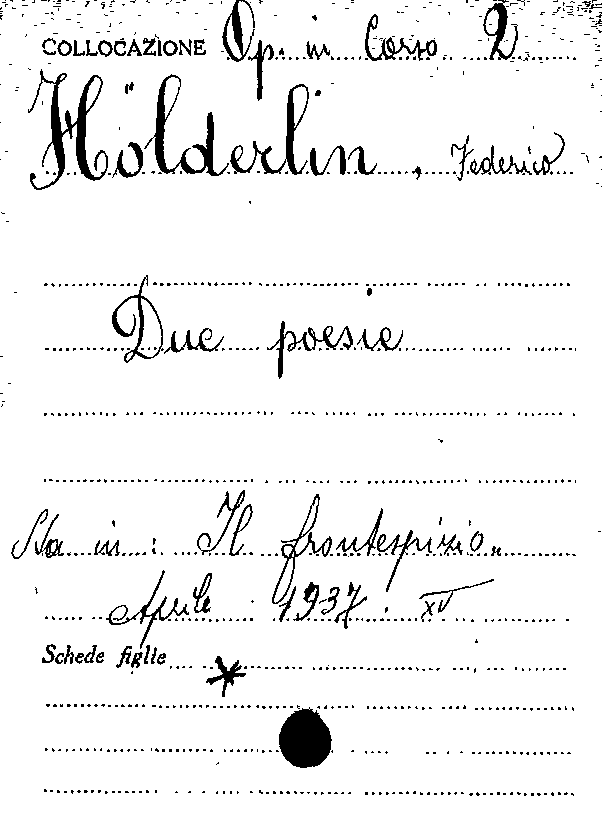 COLLOCAZIONE Op. in Corso 2
Hölderlin, Federico
Due poesie
Sta in: Il frontespizio„
Aprile 1937. XV
Schede figlie *